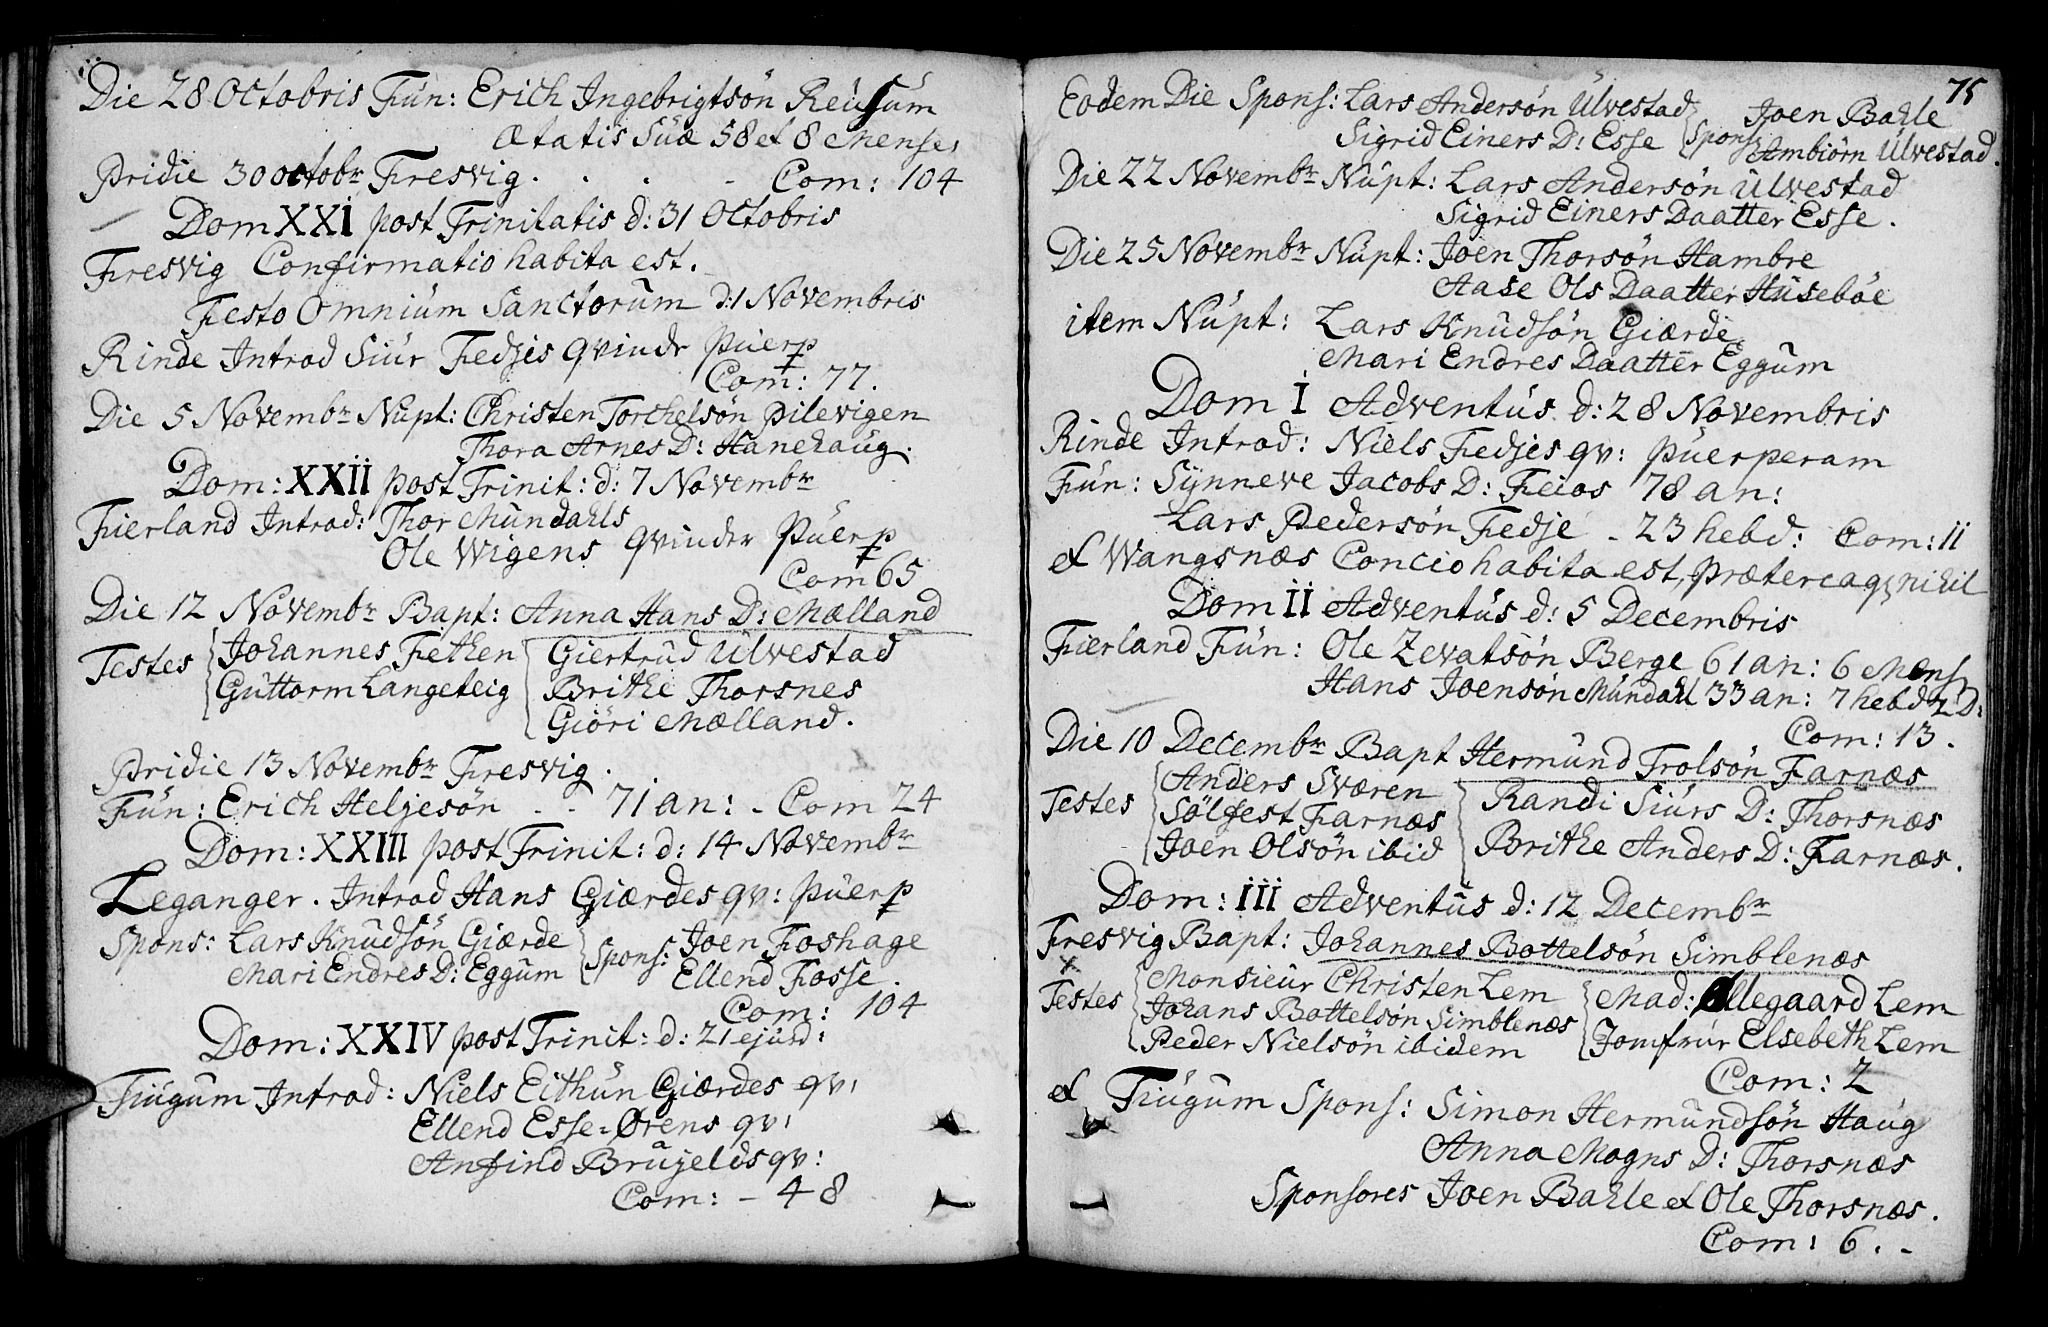 Die 28 Octobris Fun: Erich Ingebrigtsön Reusum
Ætatis Suæ 58 et 8 Mense,
Pridie 30 octobr Fresvig . . . - Com: 104
Dom XXI post Trinitatis d: 31 Octobris
Fresvig Confirmatio habita est.
Festo Omnium Sanctorum d: 1 Novembris
Rinde Introd Siur Fedjes qvinde Puerp
Com: 77.
Die 5 Novembr Nupt: Christen Torchelsön Pilevigen
Thora Arnes D: Hanehaug.
Dom: XXII post Trinit: d: 7 Novembr
Fierland Introd: Thor Mundahls
Ole Wigens qvinder Puerp
Com 65
Die 12 Novembr Bapt: Anna Hans D: Mælland
Testes Johannes Fethen Giertrud Ulvestad
Guttorm Langeteig Brithe Thorsnes
Giöri Mælland.
Pridie 13 Novembr Fresvig.
Fun: Erich Heljesön - - 71 an: - Com 24
Dom: XXIII post Trinit: d: 14 Novembr
Leganger. Introd Hans Giærdes qv: Puerp
Spons: Lars Knudsön Giærde Spons: Joen Foshage
Mari Endres D: Eggum Ellend Fosse.
Com: 104
Dom: XXIV post Trinit: d: 21 ejusd:
Fiugum Introd: Niels Eithun Giærdes qv:
Ellend Esse-Ørens qv:
Anfind Brujelds qv:
Com: - 48
75
Eodem Die Spons: Lars Andersön Ulvestad Joen Bahle
Sigrid Einers D: Esse Spons Ambiörn Ulvestad.
Die 22 Novembr Nupt: Lars Andersön Ulvestad
Sigrid Einers Daatter Esse.
Die 25 Novembr Nupt: Joen Thorsön Hambre
Aase Ols Daatter Huseböe
item Nupt: Lars Knudsön Giærde
Mari Endres Daatter Eggum
Dom I Adventus d: 28 Novembris
Rinde Introd: Niels Fedjes qv: Puerperam
Fun: Synneve Jacobs D: Feios 78 an:
Lars Pedersön Fedje - 23 hebd: Com: 11
et Wangsnæs Concio habita est, Prætereaqz nihil
Dom II Adventus d: 5 Decembris
Fierland Fun: Ole Zevatsön Berge 61 an: 6 Mens
Hans Joensön Mundahl 33 an: 7 hebd 2 D:
Com: 13.
Die 10 Decembr Bapt Hermund Trolsön Farnæs
Testes Anders Sværen Randi Siurs D: Thorsnæs
Sölfest Farnæs Brithe Anders D: Farnæs.
Joen Olsön ibid
Dom: III Adventus d: 12 Decembr
Fresvig Bapt: Johannes Bottelsön Simblenæs
x
Testes Monsieur Christen Lem Mad: Allegaard Lem
Johans Bottelsön Simblenæs Jomfrur Elsebeth Lem
Peder Nielsön ibidem
Com: 2
et Fiugum Spons: Simon Hermundsön Haug
Anna Mogns D: Thorsnæs
Sponsores Joen Bahle et Ole Thorsnæs.
Com: 6. -